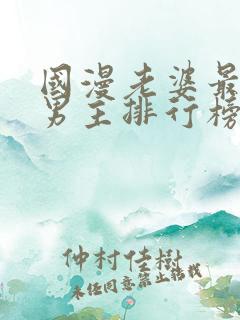 國漫老婆最
男主排行榜
仲村佳樹
未经同意禁止转载